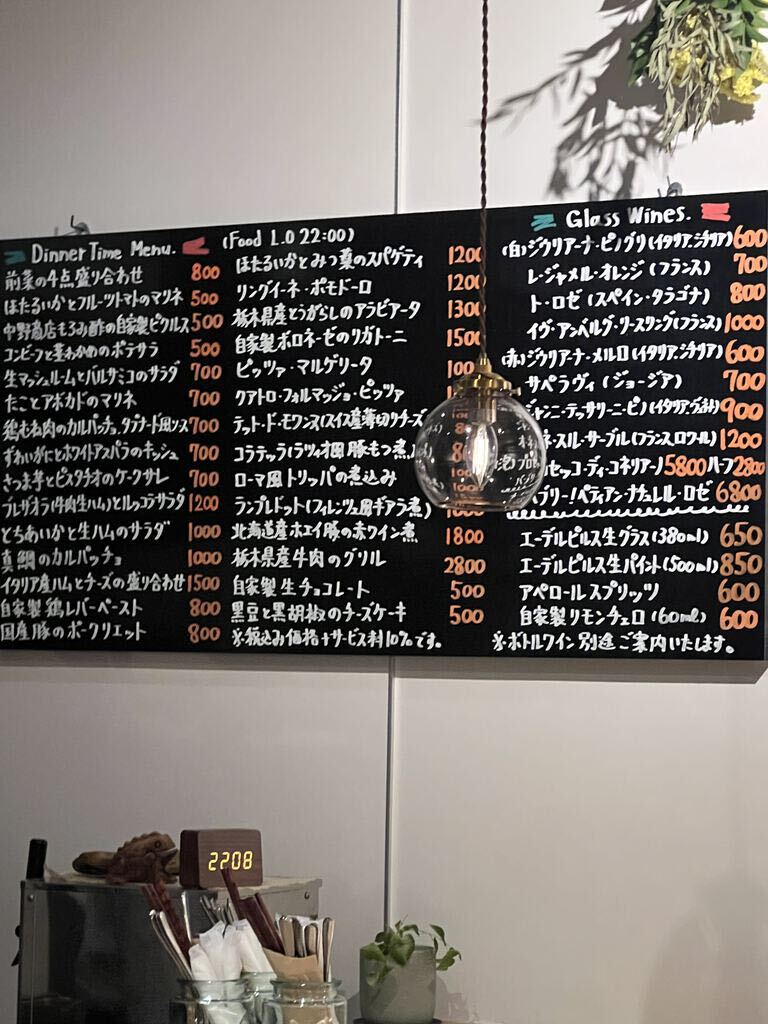 Dinner Time Menu.
前菜の4点盛り合わせ 800
ほたるいかとフルーツトマトのマリネ 500
中野商店もろみ酢の自家製ピクルス 500
コンビーフと茎わかめのポテサラ 500
生マッシュルームとバルサミコのサラダ 700
たことアボカドのマリネ 700
鶏むね肉のカルパッチョ、タプナード風ソース 700
ずわいがにとホワイトアスパラのキッシュ 700
さつま芋とピスタチオのケークサレ 700
ブレザオラ(牛肉生ハム)とルッコラサラダ 1200
とちあいかと生ハムのサラダ 1000
真鯛のカルパッチョ 1000
イタリア産ハムとチーズの盛り合わせ 1500
自家製鶏レバーペースト 800
国産豚のポークリエット 800
(Food L.O 22:00)
ほたるいかとみつ葉のスパゲティ 1200
リングイーネ・ポモドーロ 1200
栃木県産とうがらしのアラビアータ 1300
自家製ボロネーゼのリガトーニ 1500
ピッツァ・マルゲリータ
クアトロ・フォルマッジョ・ピッツァ
テット・ド・モワンヌ(スイス産薄切りチーズ
コラテッラ(ラツィオ風豚もつ煮
ローマ風トリッパの煮込み
ランプレドット(フィレンツェ風ギアラ煮)
北海道産ホエイ豚の赤ワイン煮 1800
栃木県産牛肉のグリル 2800
自家製生チョコレート 500
黒豆と黒胡椒のチーズケーキ 500
※税込み価格+サービス料10%です。
Glass Wines.
(白)ジウリアーナ・ピノグリ(イタリア、シチリア) 600
レ・ジャメル・オレンジ(フランス) 700
ト・ロゼ(スペイン・タラゴナ) 800
イヴ・アンベルグ・リースリング(フランス) 1000
(赤)ジウリアーナ・メルロ(イタリア、シチリア) 600
サペラヴィ(ジョージア) 700
ジャンニ・テッサリーニ・ピノ(イタリア、ヴェネト) 900
ネ・スル・サーブル(フランス、ロワール) 1200
セッコ・ディ・コネリアーノ 5800 ハーフ 2800
ブリー!ペティアン・ナチュレル・ロゼ 6800
エーデルピルス生グラス(380ml) 650
エーデルピルス生パイント(500ml) 850
アペロールスプリッツ 600
自家製リモンチェロ(60ml) 600
※ボトルワイン別途ご案内いたします。
2208